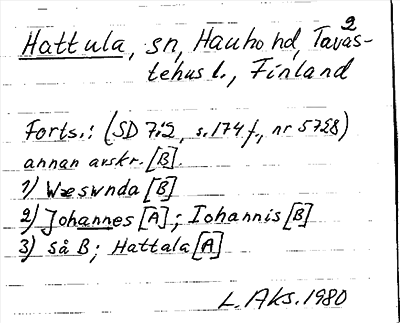 2
Hattula, sn, Hauho hd, Tavas-
tehus l., Finland
Forts.: (SD 7:2, s. 174 f., nr 5728)
annan avskr. [B].
1) Wæswnda [B]
2) Johannes [A]; Iohannis [B]
3) så B; Hattala [A]
L. Aks. 1980